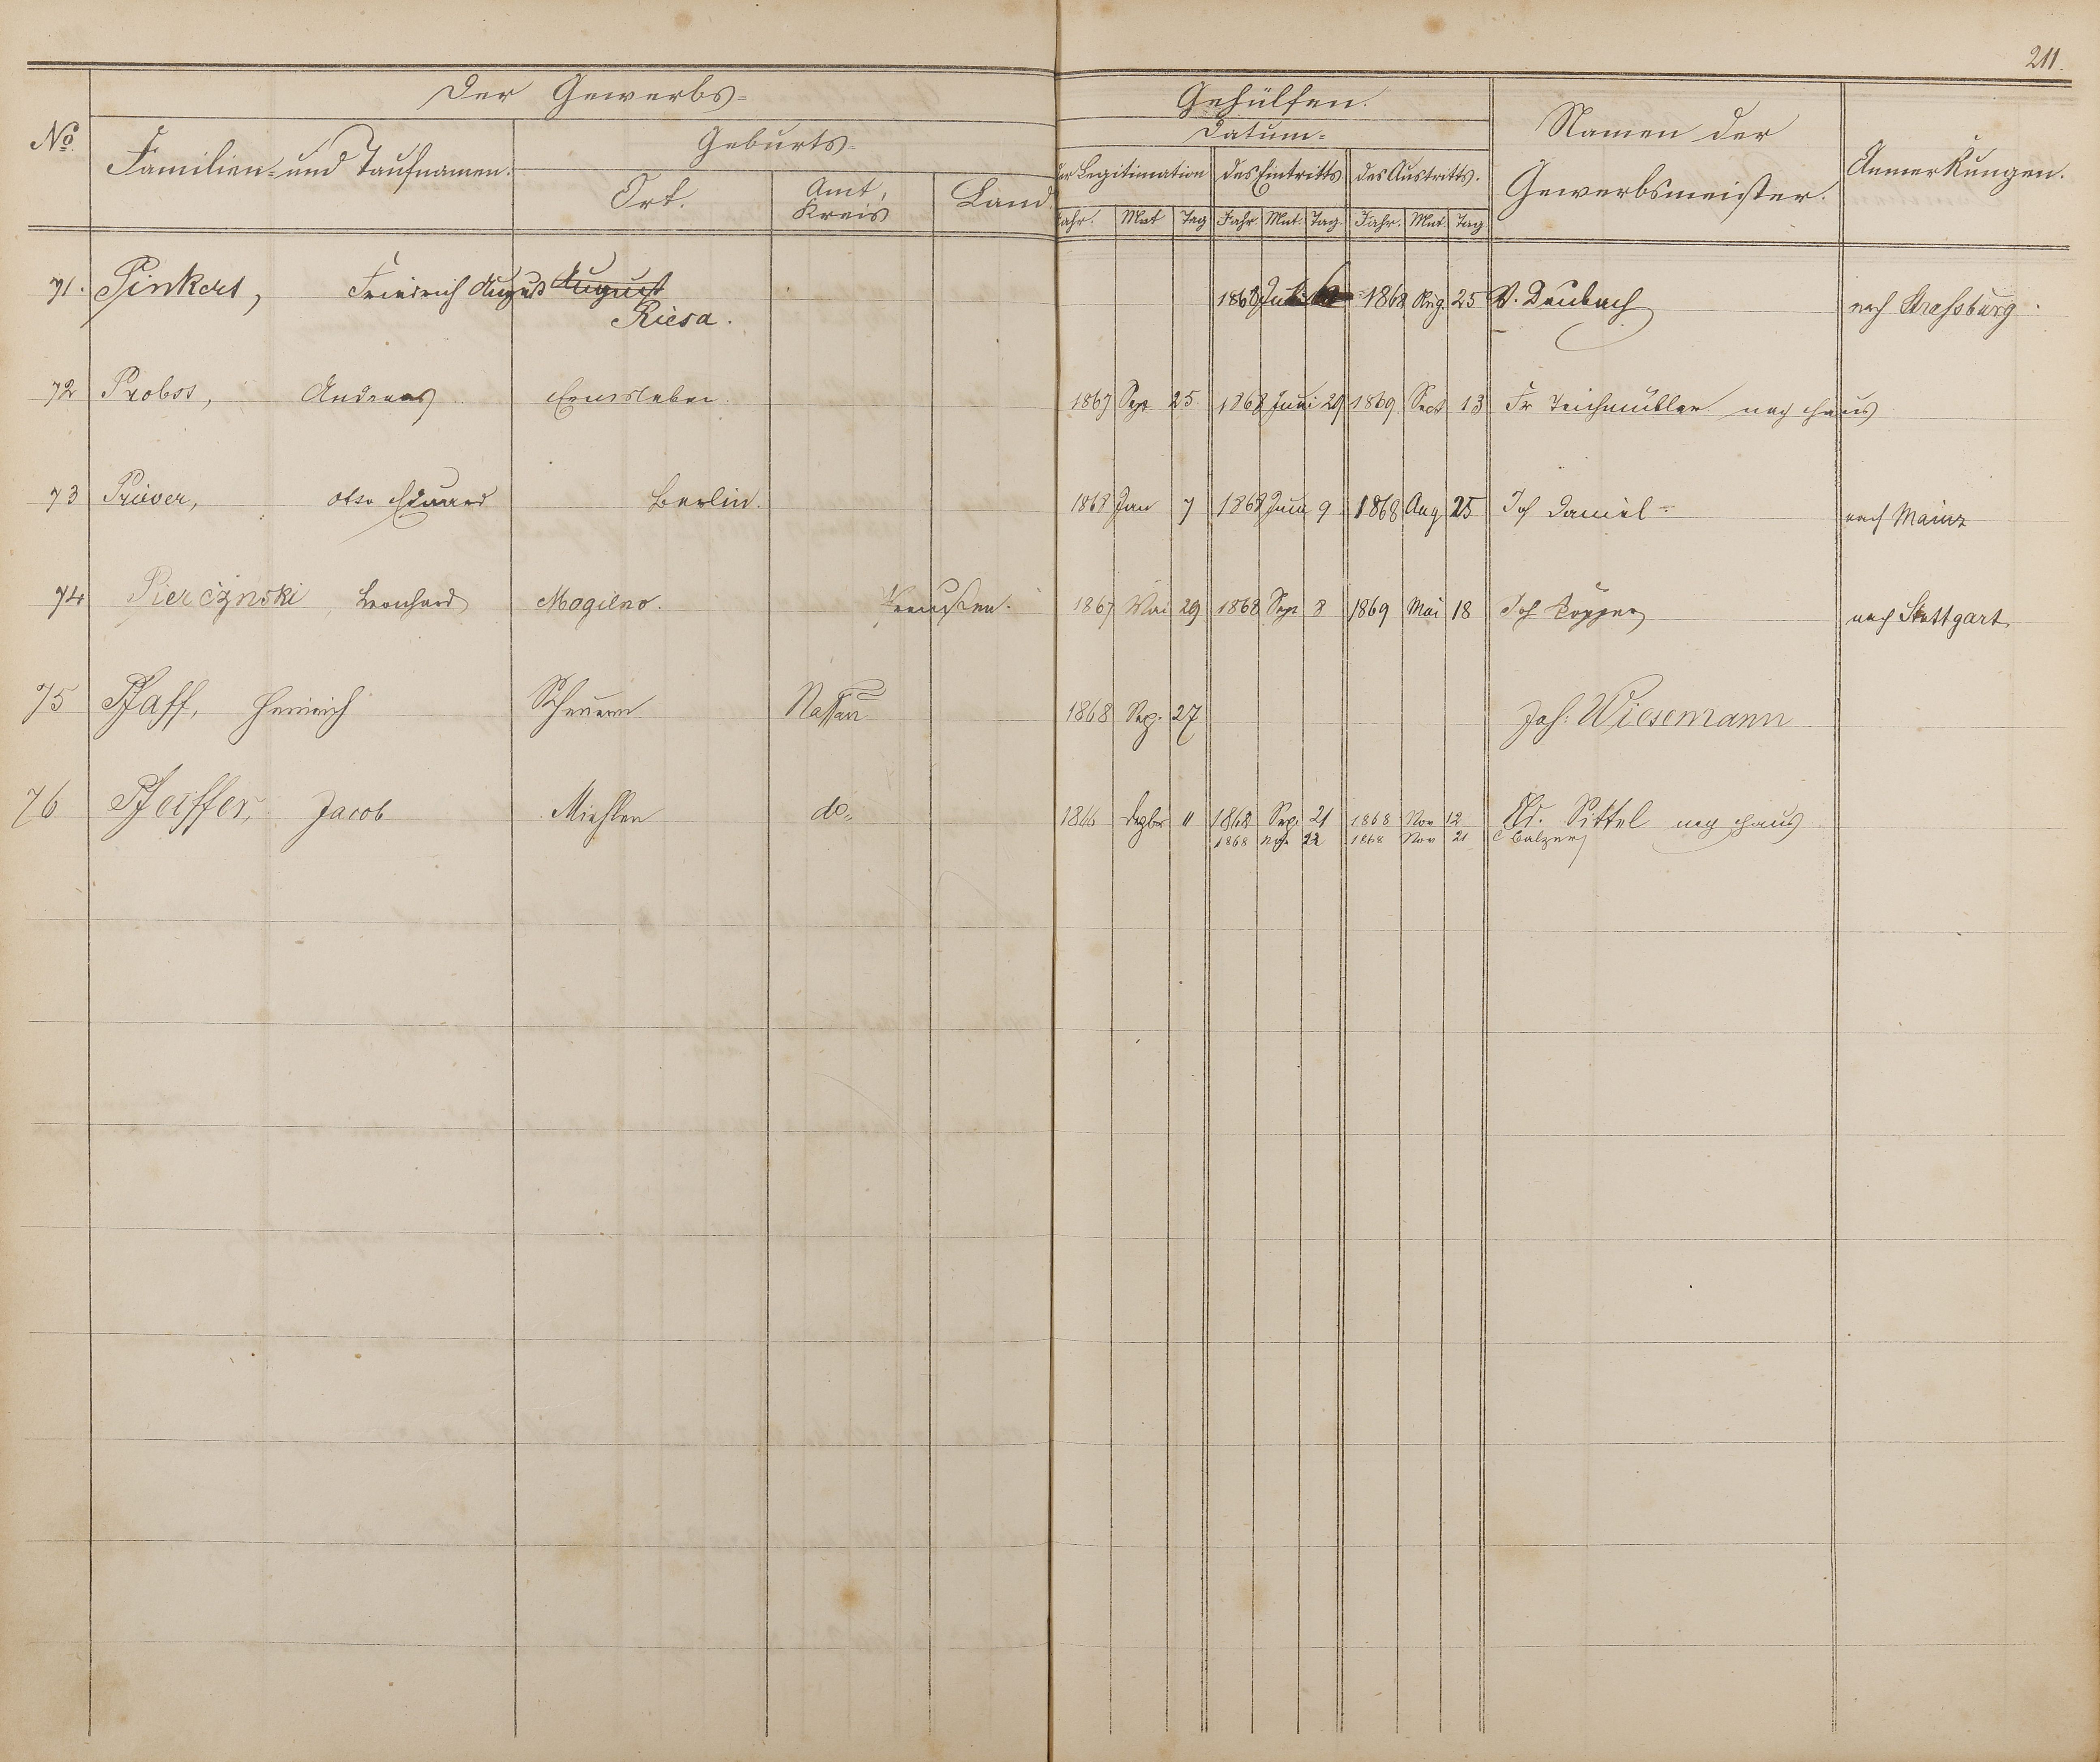 211.
Der Gewerbs- Gehülfen.
No. Familien- und Taufnamen. Geburts- Datum- Namen der Gewerbsmeister. Anmerkungen.
Ort. Amt, Kreis Land. der Legitimation des Eintritts des Austritts.
Jahr. Mnt Tag Jahr. Mnt. Tag. Jahr. Mnt. Tag
71. Pinkert, Friedrich August August 1868 Juli 1868 Aug. 25 W. Daubach nach Straßburg.
Riesa.
72 Probst, Andreas Ermsleben. 1867 Sept 25. 1868 Juni 29 1869 Sept 13 Fr Teichmüller nach Haus
73 Prüver, Otto Eduard Berlin. 1868 Jan 7 1868 Juni 9 1868 Aug 25 Joh Daniel nach Mainz
74 Pierczynski Leonhard Mogilno. Preußen. 1867 Mai 29 1868 Sep 8 1869 Mai 18 Joh nach Stuttgart
75 Pfaff, Heinrich Scheuern Nassau 1868 Sep. 27 Joh. Wiesemann
76 Pfeiffer, Jacob Miehlen do. 1866 Dezbr 11 1868 Sep. 21 1868 Nov 12 Ad. Sittel nach Haus
1868 Nov 1868 Nov 21 C Balzer